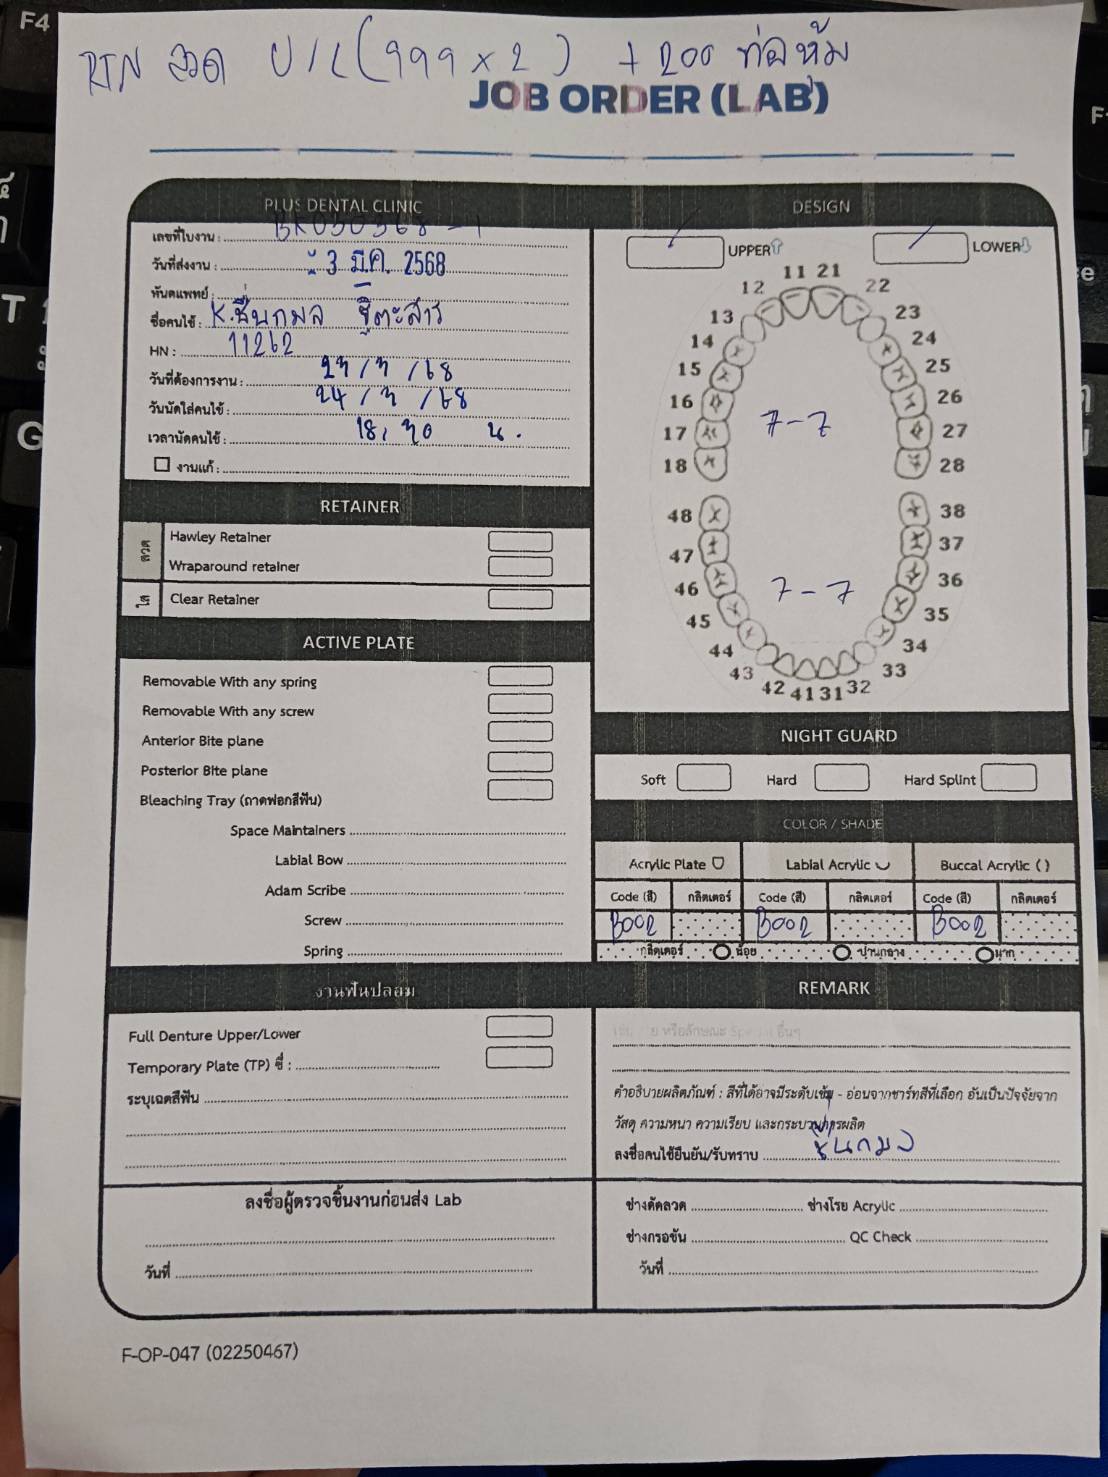 RTN ลวด U/L (999 x 2) + 200 ท่อหุ้ม
JOB ORDER (LAB)
PLUS DENTAL CLINIC
เลขที่ใบงาน : BK030368-1
วันที่ส่งงาน : 3 มี.ค. 2568
ทันตแพทย์ :
ชื่อคนไข้ : K.ชื่นกมล ฐิตะสาร
HN : 11262
วันที่ต้องการงาน : 23/3/68
วันนัดใส่คนไข้ : 24/3/68
เวลานัดคนไข้ : 18.30 น.
งานแก้ :
RETAINER
ลวด
Hawley Retainer
Wraparound retainer
ใส
Clear Retainer
ACTIVE PLATE
Removable With any spring
Removable With any screw
Anterior Bite plane
Posterior Bite plane
Bleaching Tray (ถาดฟอกสีฟัน)
Space Maintainers
Labial Bow
Adam Scribe
Screw
Spring
งานฟันปลอม
Full Denture Upper/Lower
Temporary Plate (TP) ซี่ :
ระบุเฉดสีฟัน
ลงชื่อผู้ตรวจชิ้นงานก่อนส่ง Lab
วันที่
DESIGN
UPPER LOWER
11 21
12 22
13 23
14 24
15 25
16 26
17 7-7 27
18 28
48 38
47 37
46 7-7 36
45 35
44 34
43 33
42 41 31 32
NIGHT GUARD
Soft Hard Hard Splint
COLOR / SHADE
Acrylic Plate Labial Acrylic Buccal Acrylic ( )
Code (สี) กลิตเตอร์ Code (สี) กลิตเตอร์ Code (สี) กลิตเตอร์
B002 B002 B002
กลิตเตอร์ น้อย ปานกลาง มาก
REMARK
คำอธิบายผลิตภัณฑ์ : สีที่ได้อาจมีระดับเข้ม - อ่อนจากชาร์ทสีที่เลือก อันเป็นปัจจัยจาก
วัสดุ ความหนา ความเรียบ และกระบวนการผลิต
ลงชื่อคนไข้ยืนยัน/รับทราบ ชื่นกมล
ช่างดัดลวด ช่างโรย Acrylic
ช่างกรอขัน QC Check
วันที่
F-OP-047 (02250467)